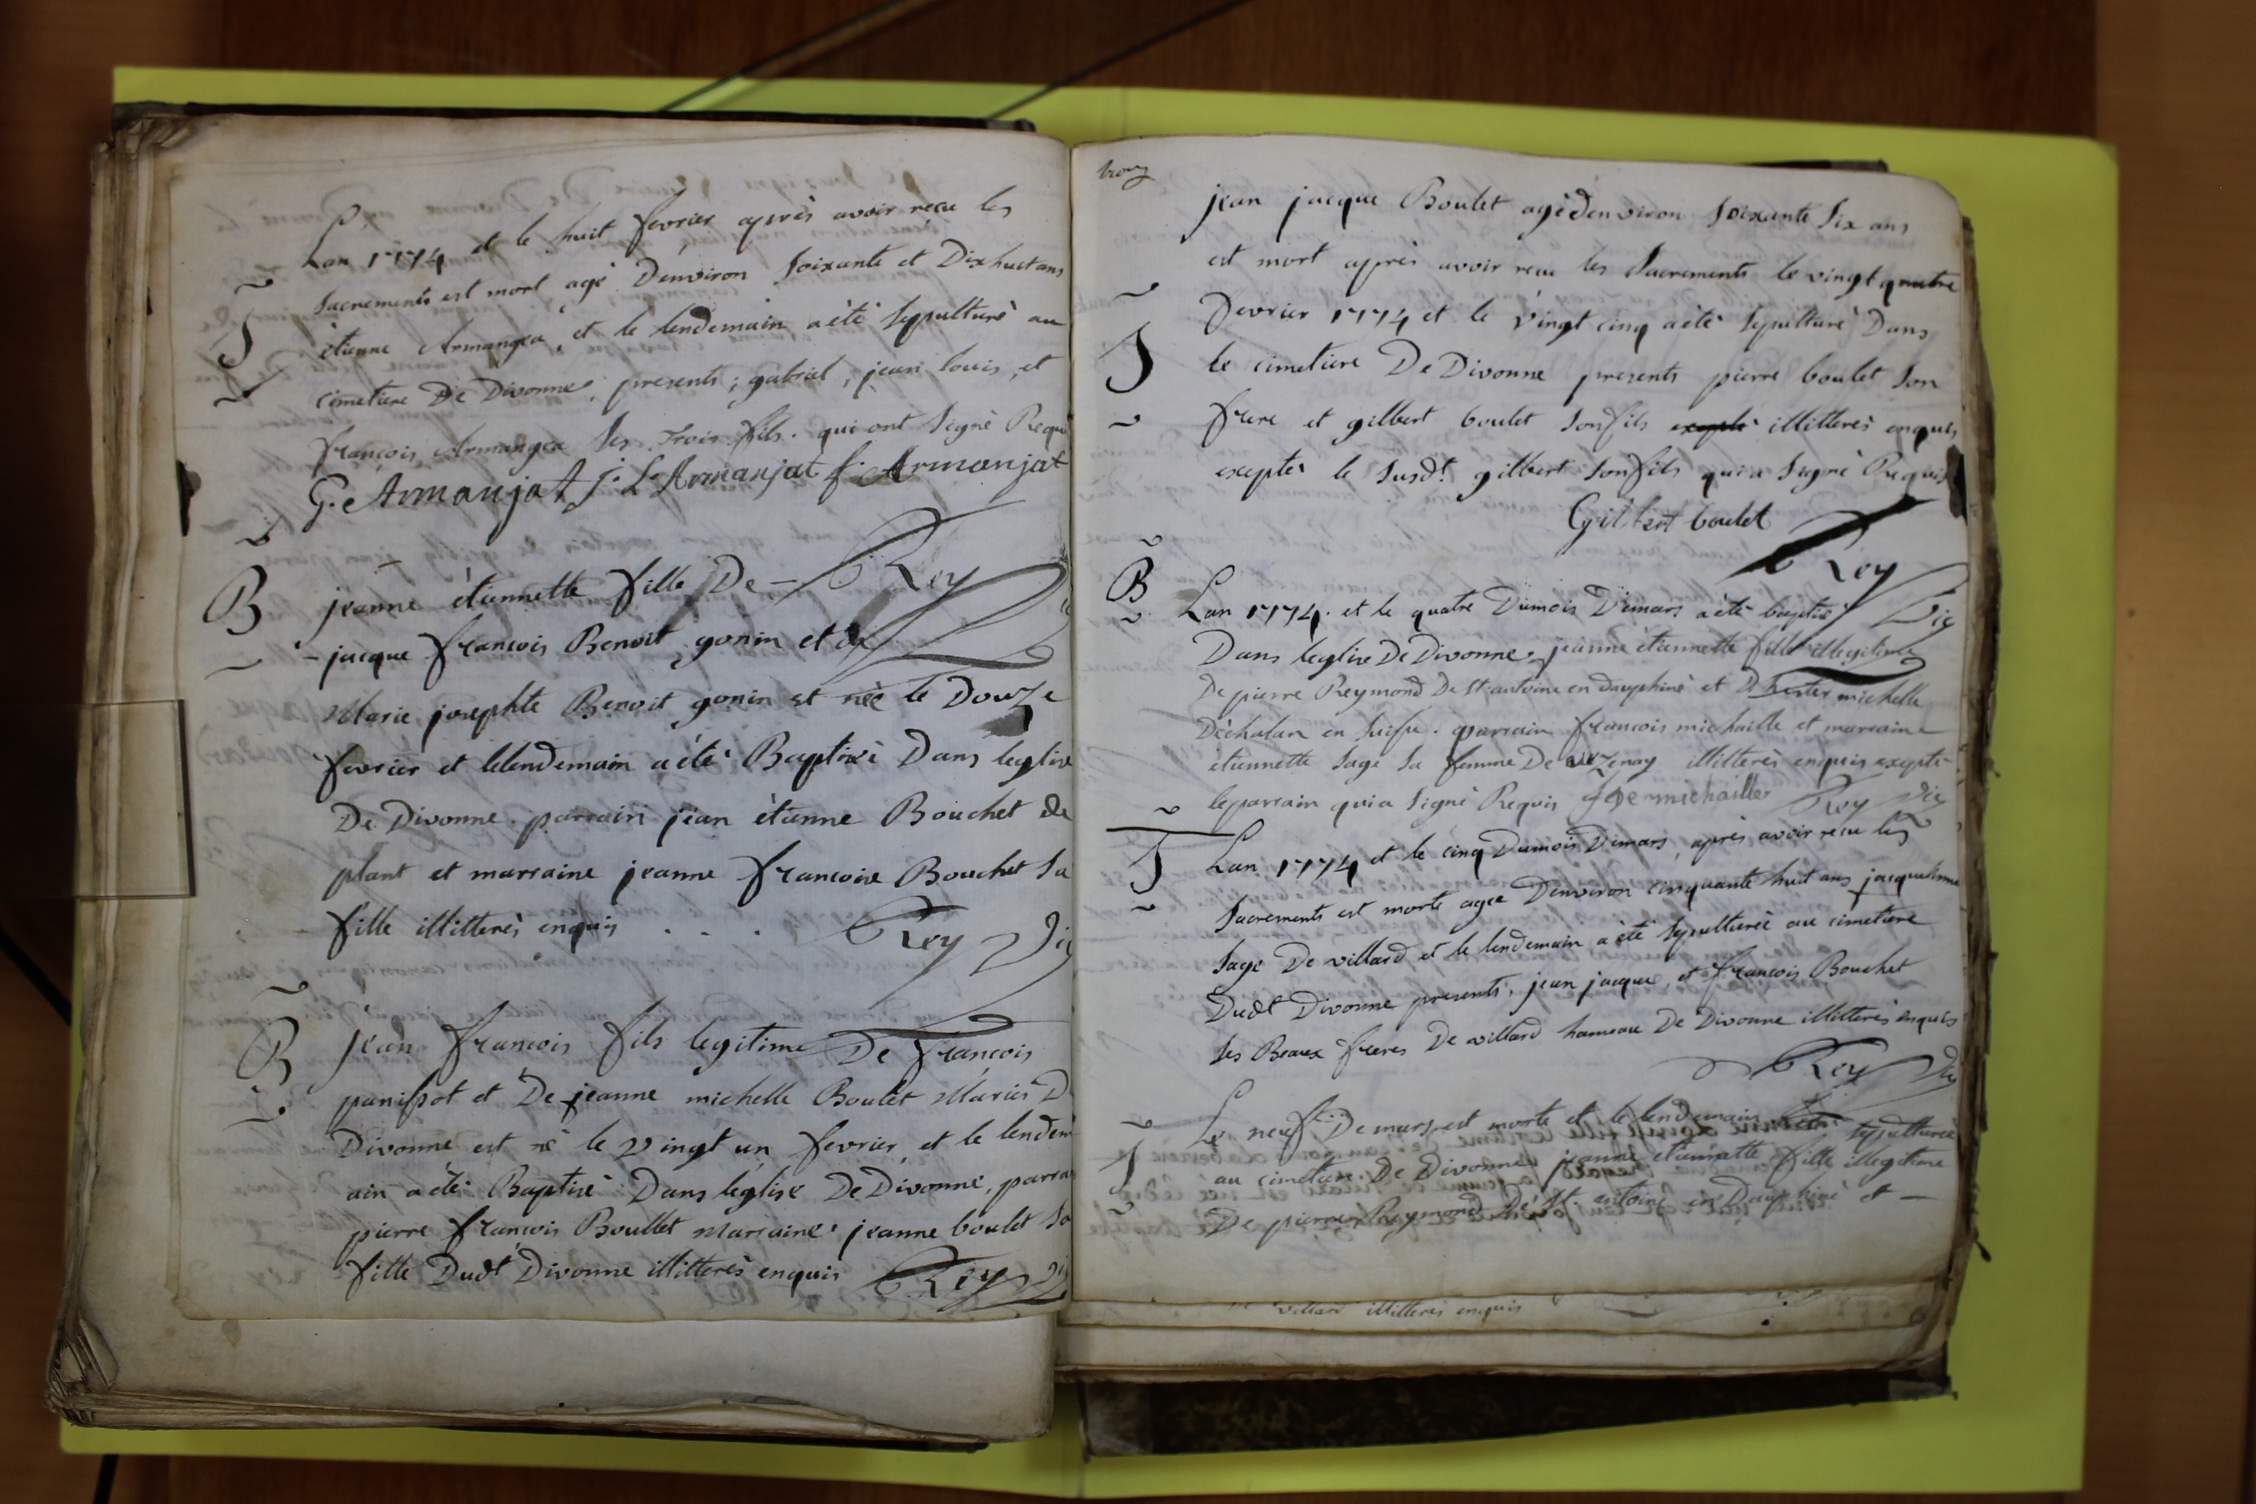 S
Lan 1774 et le huit fevrier après avoir recu les
Sacrements est mort agé Denviron Soixante et Dixhuit ans
ètienne Armangea, et le lendemain a èté sepulturé au
cimetiere De Divonne, presents, gabriel, jean louis, et
françois Armangea Ses trois fils. qui ont Signè Requi
G. Armanjat J. L. Armanjat f. Armanjat
Rey
B
jeanne ètiennette fille De
jacque francois Benoit gonin et de
Marie josephte Benoit gonin est nèe le Douze
fevrier et lelendemain a èté Baptisè Dans leglise
De Divonne. parrain jean ètienne Bouchet de
plant et marraine jeanne francoise Bouchet Sa
fille illitterès enquis . . . Rey Vic
B
jean francois fils legitime De francois
panissot et De jeanne michelle Boulet Mariès D
Divonne est nè le vingt un fevrier, et le lendem
ain a èté Baptisè Dans l'eglise De Divonne, parra
pierre francois Boullet Marraine jeanne boulet Sa
fille Dudt Divonne illitterès enquis Rey Vic
S
jean jacque Boulet agè Denviron Soixante Six ans
est mort après avoir recu les Sacrements le vingt quatre
fevrier 1774 et le vingt cinq a èté Sepulturè Dans
le cimetiere De Divonne presents pierre boulet Son
frere et gilbert boulet Son fils illitterès enquis
exceptès le Susdt. gilbert Son fils qui a Signè Requis
Gilbert boulet
Rey Vic
B
Lan 1774. et le quatre Dumois Demars a èté baptisè
Dans leglise De Divonne, jeanne ètiennette fille illegitime
De pierre Reymond De St antoine en dauphinè et D michelle
Dèchalan en Suisse. parrain francois michaille et marraine
ètiennette Sage Sa femme De vezenay illitterès enquis exceptè
le parrain qui a Signè Requis michaille Rey Vic
S
Lan 1774 et le cinq Dumois Demars, après avoir recu les
Sacrements est morte agee Denviron cinquante huit ans jacquelinne
Sage De villard et le lendemain a èté Sepulturèe au cimetiere
Dudt Divonne presents, jean jacque, et francois Bouchet
Ses Beaux freres De villard hameau De Divonne illitterès enquis
Rey Vic
S
Le neuf De mars est morte et le lendemain a èté Sepulturèe
au cimetiere De Divonne jeanne ètiennette fille illegitime
De pierre Reymond De St. antoine en Dauphinè et —
villard illitterès enquis